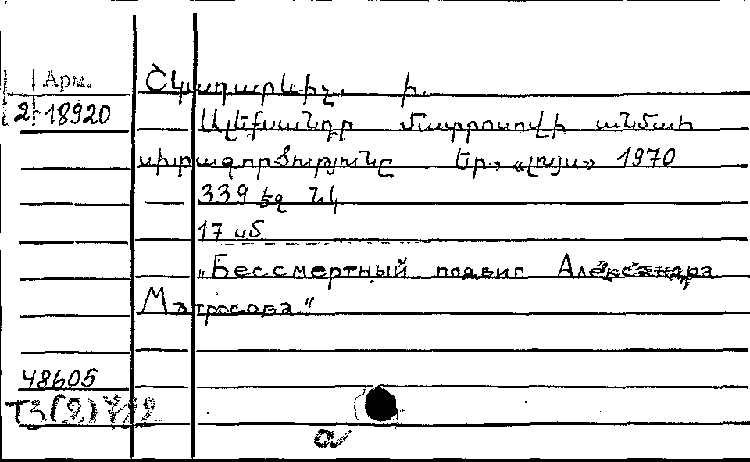 Арм.
2-18920
Շկադարևիչ. Ի.
Ալեքսանդր Մատրոսովի անմահ
սխրագործությունը Եր., «Լույս» 1970
339 էջ նկ
17 սմ
„Бессмертный подвиг Александра
Матросова“
48605
а